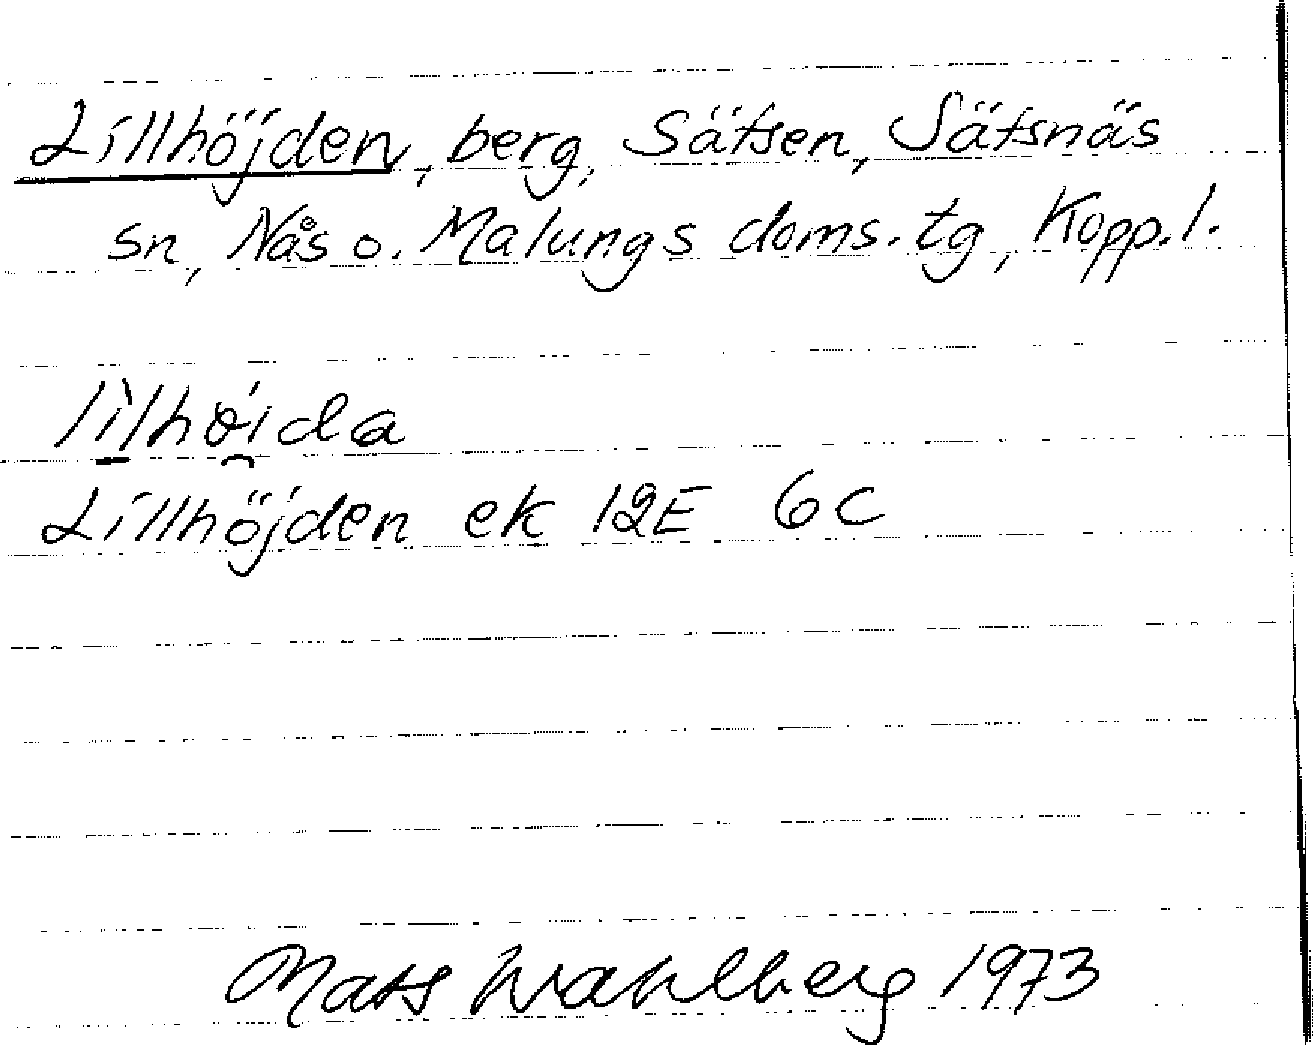 Lillhöjden, berg, Sätsen, Sätsnäs
sn, Nås o. Malungs doms. tg, Kopp. l.
Lillhöjden ek 12E 6C
Mats Wahlberg 1973